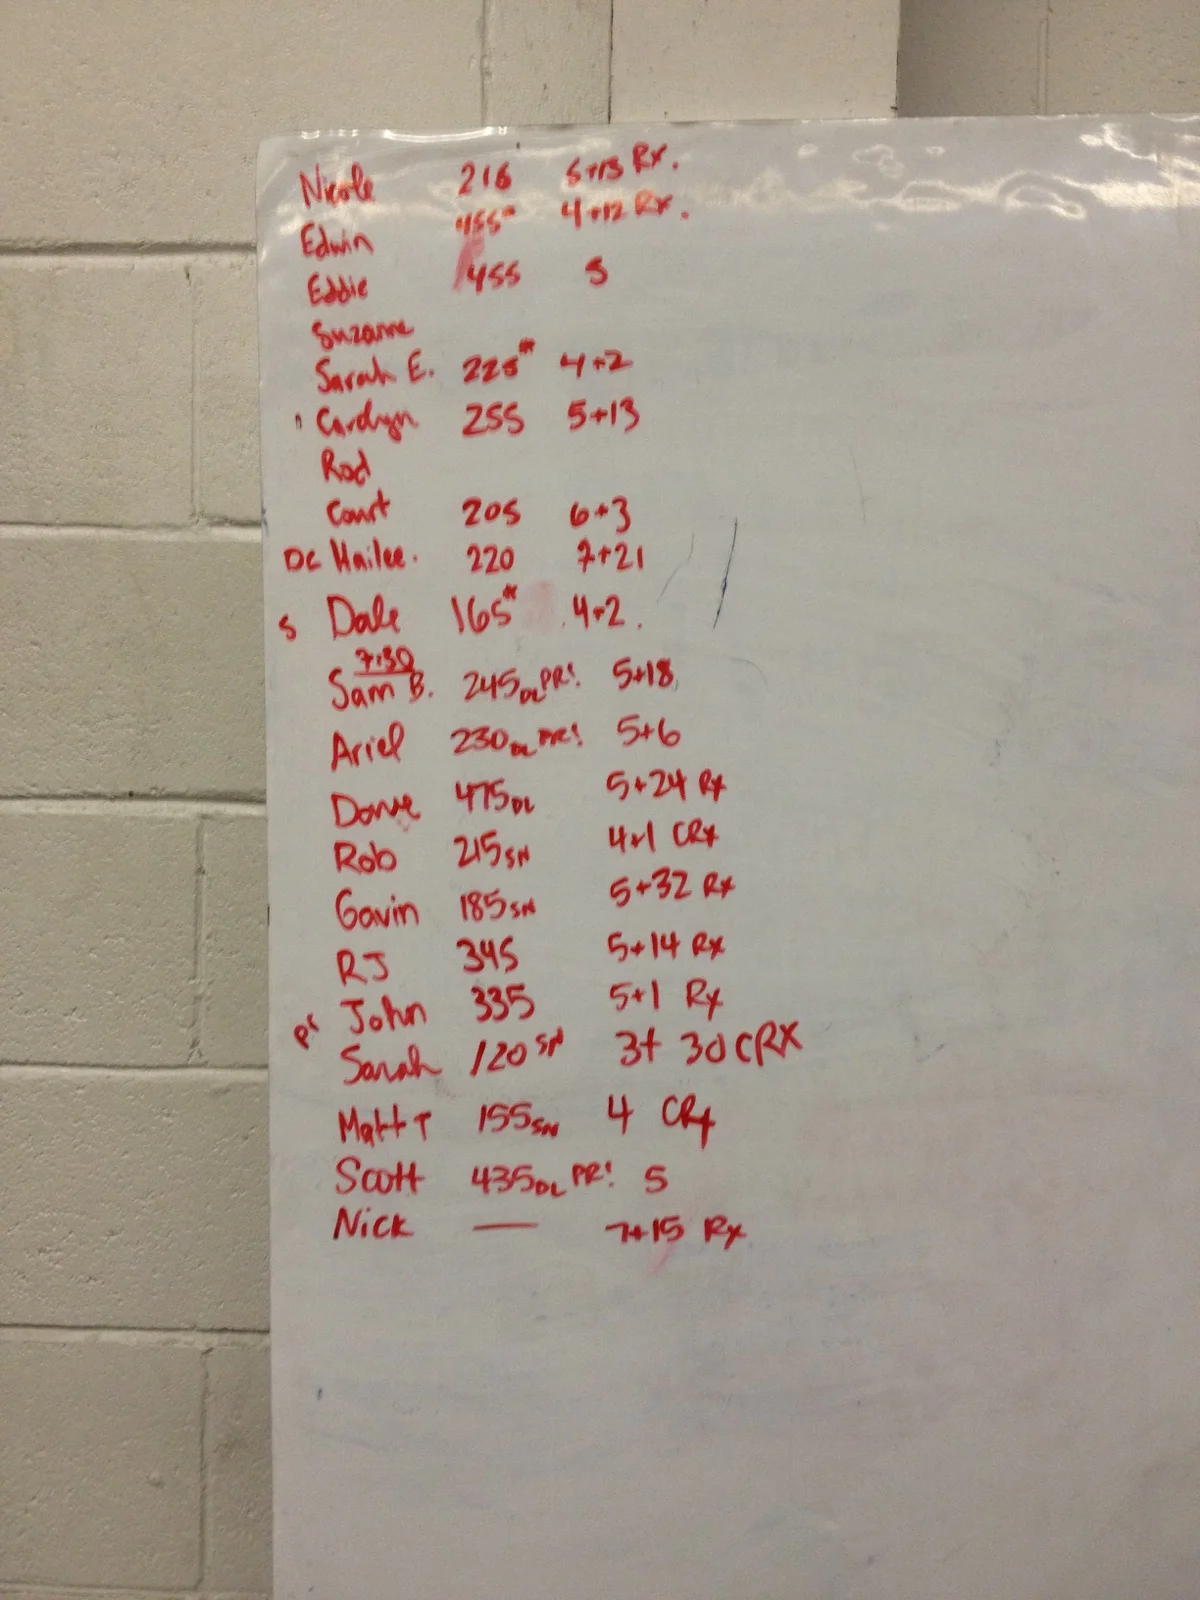 Nicole 216 5+13 Rx.
Edwin 455* 4+12 Rx.
Eddie 455 5
Suzanne
Sarah E. 225* 4+2
Carolyn 255 5+13
Rod
Court 205 6+3
DC Hailee. 220 7+21
S Dale 165* 4+2.
7:30
Sam B. 245DL PR! 5+18
Ariel 230DL PR! 5+6
475DL 5+24 Rx
Rob 215SN 4+1 CRx
Gavin 185SN 5+32 Rx
RJ 345 5+14 Rx
John 335 5+1 Rx
Sarah 120 SN 3+ 30 CRX
Matt T 155SN 4 CRx
Scott 435DL PR! 5
Nick — 7+15 Rx